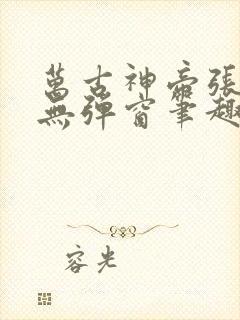 萬古神帝張
無彈窗筆趣
容光